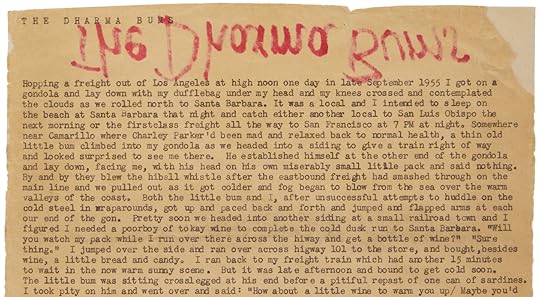 THE DHARMA BUMS
The Dharma Bums
Hopping a freight out of Los Angeles at high noon one day in late September 1955 I got on a
gondola and lay down with my dufflebag under my head and my knees crossed and contemplated
the clouds as we rolled north to Santa Barbara. It was a local and I intended to sleep on
the beach at Santa Barbara that night and catch either another local to San Luis Obispo the
next morning or the firstclass freight all the way to San Francisco at 7 PM at night. Somewhere
near Camarillo where Charley Parker'd been mad and relaxed back to normal health, a thin old
little bum climbed into my gondola as we headed into a siding to give a train right of way
and looked surprised to see me there. He established himself at the other end of the gondola
and lay down, facing me, with his head on his own miserably small little pack and said nothing.
By and by they blew the hiball whistle after the eastbound freight had smashed through on the
main line and we pulled out as it got colder and fog began to blow from the sea over the warm
valleys of the coast. Both the little bum and I, after unsuccessful attempts to huddle on the
cold steel in wraparounds, got up and paced back and forth and jumped and flapped arms at each
our end of the gon. Pretty soon we headed into another siding at a small railroad town and I
figured I needed a poorboy of tokay wine to complete the cold dusk run to Santa Barbara. "Will
you watch my pack while I run over there across the hiway and get a bottle of wine?" "Sure
thing." I jumped over the side and ran over across higway 101 to the store, and bought, besides
wine, a little bread and candy. I ran back to my freight train which had another 15 minutes
to wait in the now warm sunny scene. But it was late afternoon and bound to get cold soon.
The little bum was sitting crosslegged at his end before a pitiful repast of one can of sardines.
I took pity on him and went over and said: "How about a little wine to warm you up/ Maybe you'd